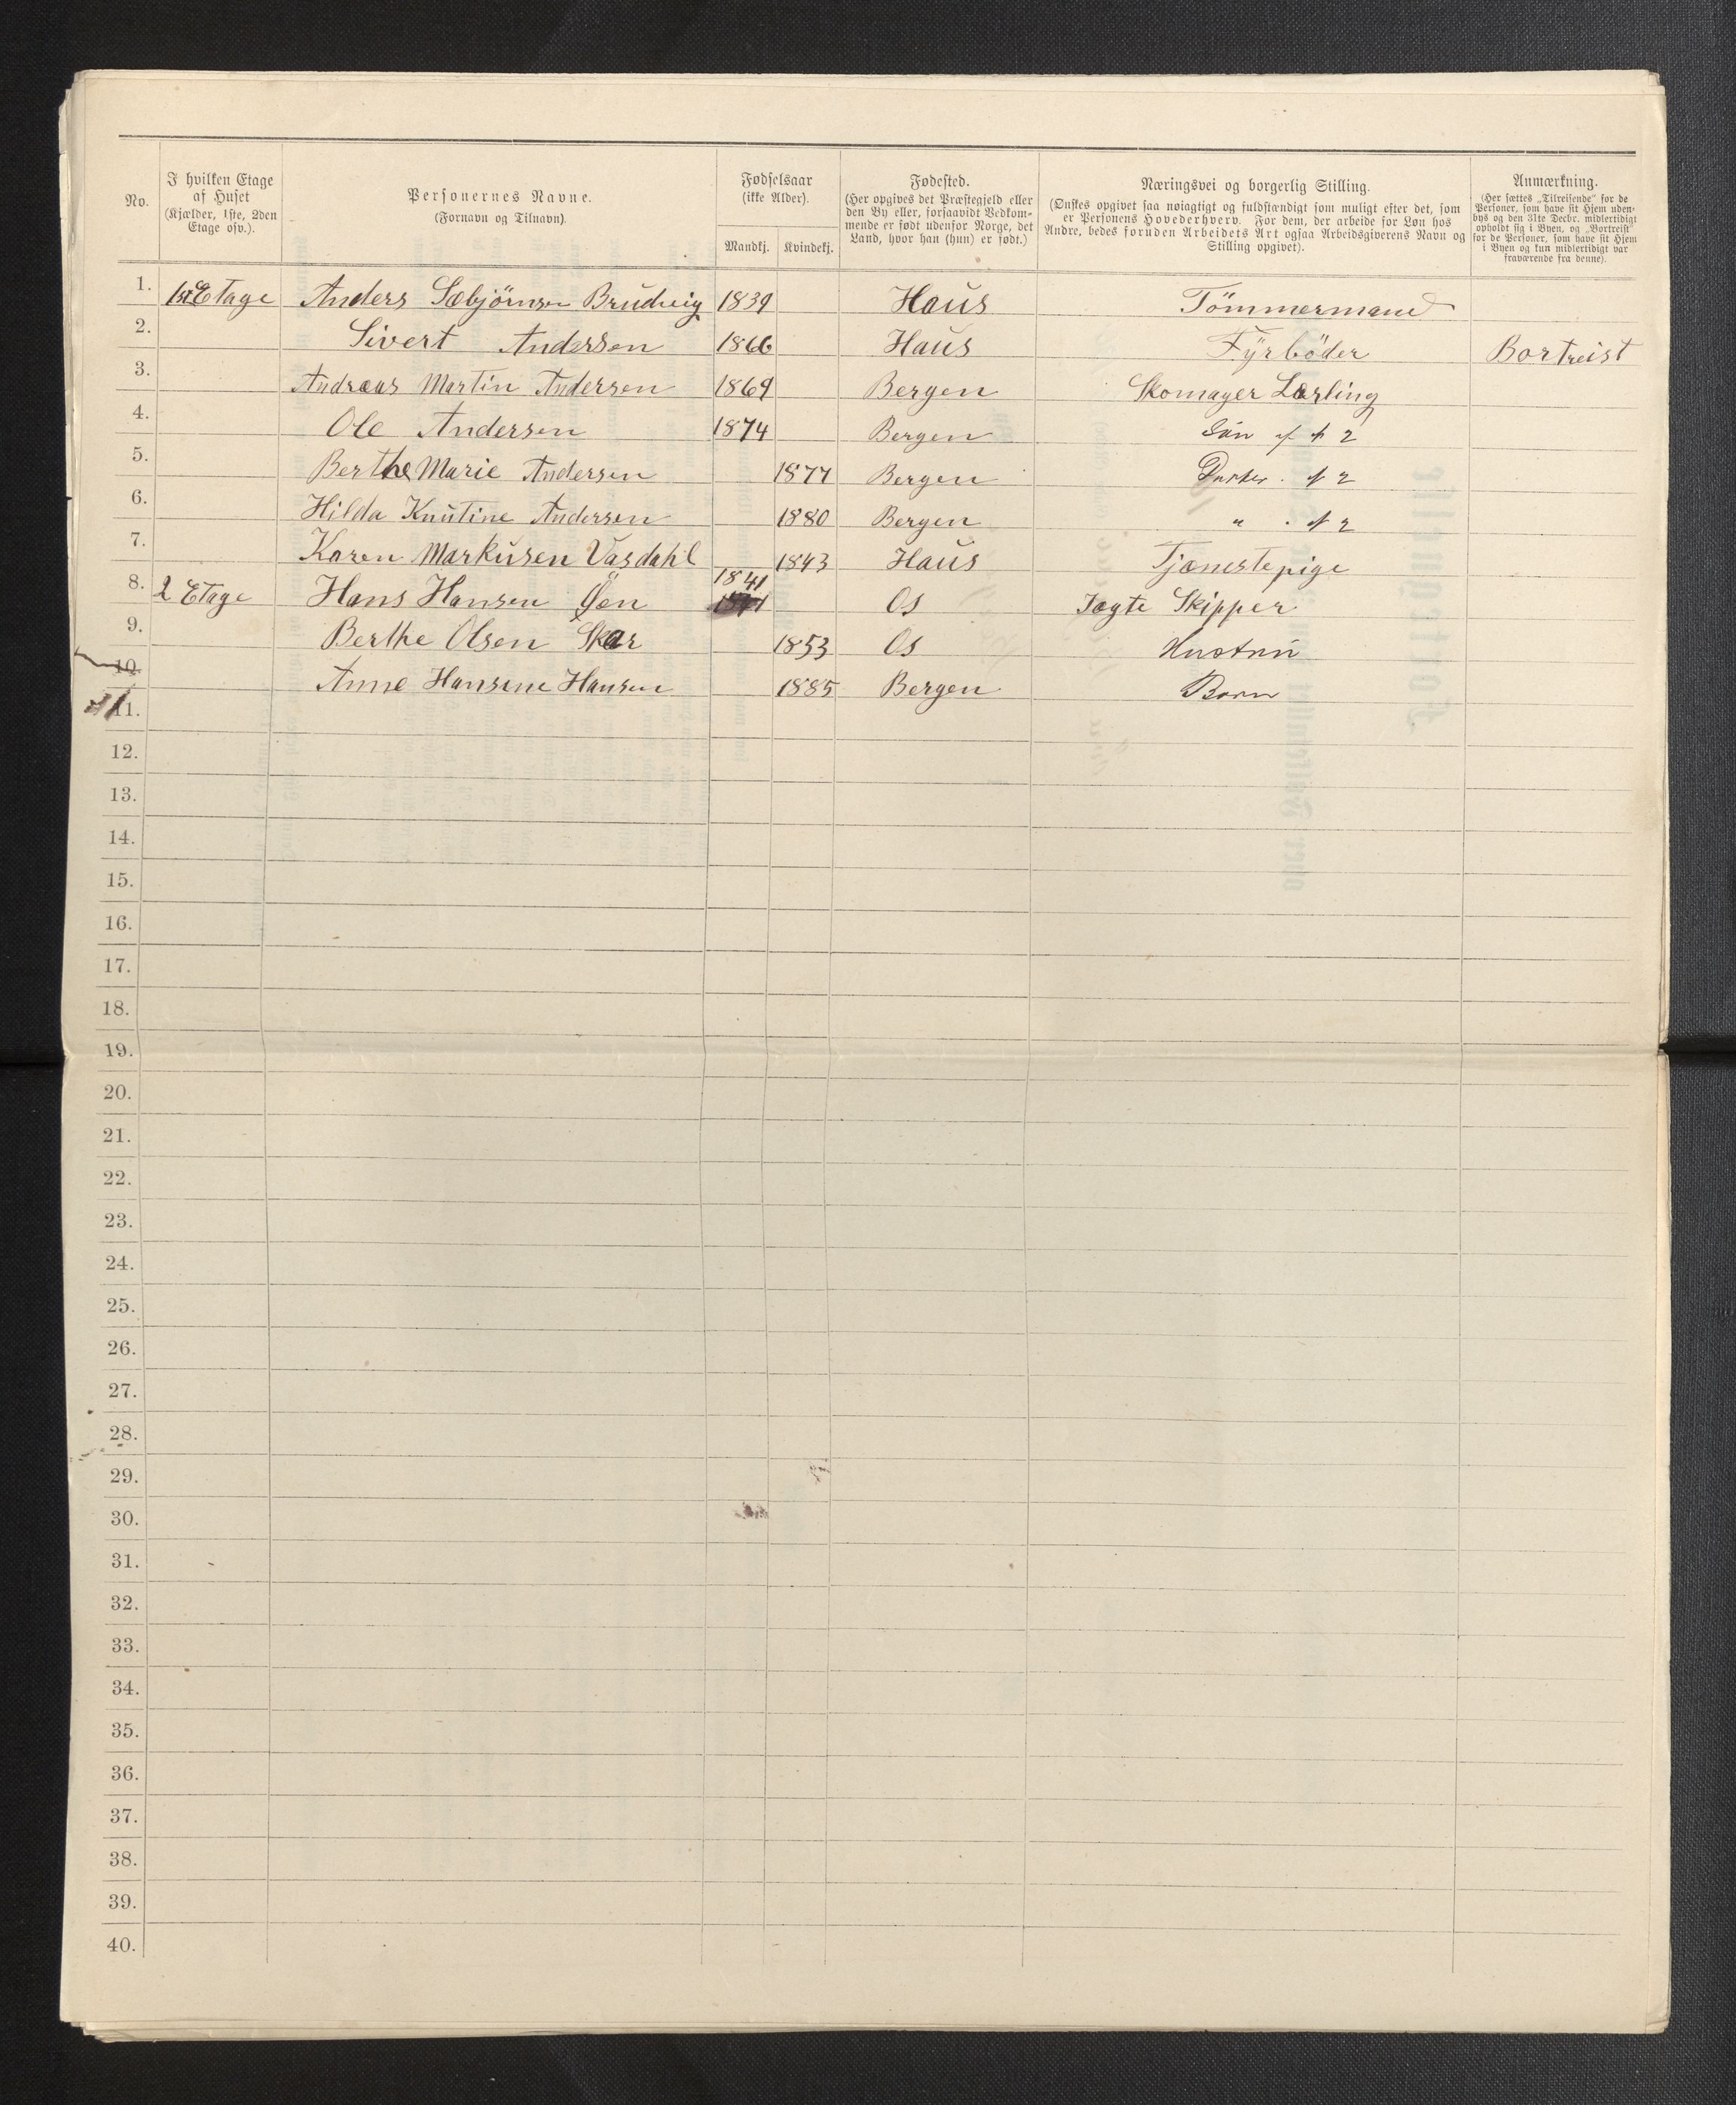 No.
I hvilken Etage
af Huset
(Kjælder, 1ste, 2den
Etage osv.).
Personernes Navne.
(Fornavn og Tilnavn).
Fødselsaar
(ikke Alder).
Mandkj. Kvindekj.
Fødested.
(Her opgives det Præstegjeld eller
den By eller, forsaavidt Vedkom-
mende er født udenfor Norge, det
Land, hvor han (hun) er født.)
Næringsvei og borgerlig Stilling.
(Ønskes opgivet saa nøiagtigt og fuldstændigt som muligt efter det, som
er Personens Hovederhverv. For dem, der arbeide for Løn hos
Andre, bedes foruden Arbeidets Art ogsaa Arbeidsgiverens Navn og
Stilling opgivet).
Anmærkning.
(Her sættes „Tilreisende“ for de
Personer, som have sit Hjem uden-
bys og den 31te Decbr. midlertidigt
opholdt sig i Byen, og „Bortreist“
for de Personer, som have sit Hjem
i Byen og kun midlertidigt var
fraværende fra denne).
1. 1st Etage Anders Sæbjörnsen Brudvig 1839 Haus Tömmermand
2. Sivert Andersen 1866 Haus Fyrböder Bortreist
3. Andreas Martin Andersen 1869 Bergen Skomager Lærling
4. Ole Andersen 1874 Bergen Sön af 2
5. Berthe Marie Andersen 1877 Bergen Datter 2
6. Hilda Knutine Andersen 1880 Bergen " 2
7. Karen Markusen Vasdahl 1843 Haus Tjænestepige
8. 2 Etage Hans Hansen Öen 1841 Os Jægte Skipper
9. Berthe Olsen Skar 1853 Os Hustru
10. Anne Hansine Hansen 1885 Bergen Barn
11.
12.
13.
14.
15.
16.
17.
18.
19.
20.
21.
22.
23.
24.
25.
26.
27.
28.
29.
30.
31.
32.
33.
34.
35.
36.
37.
38.
39.
40.